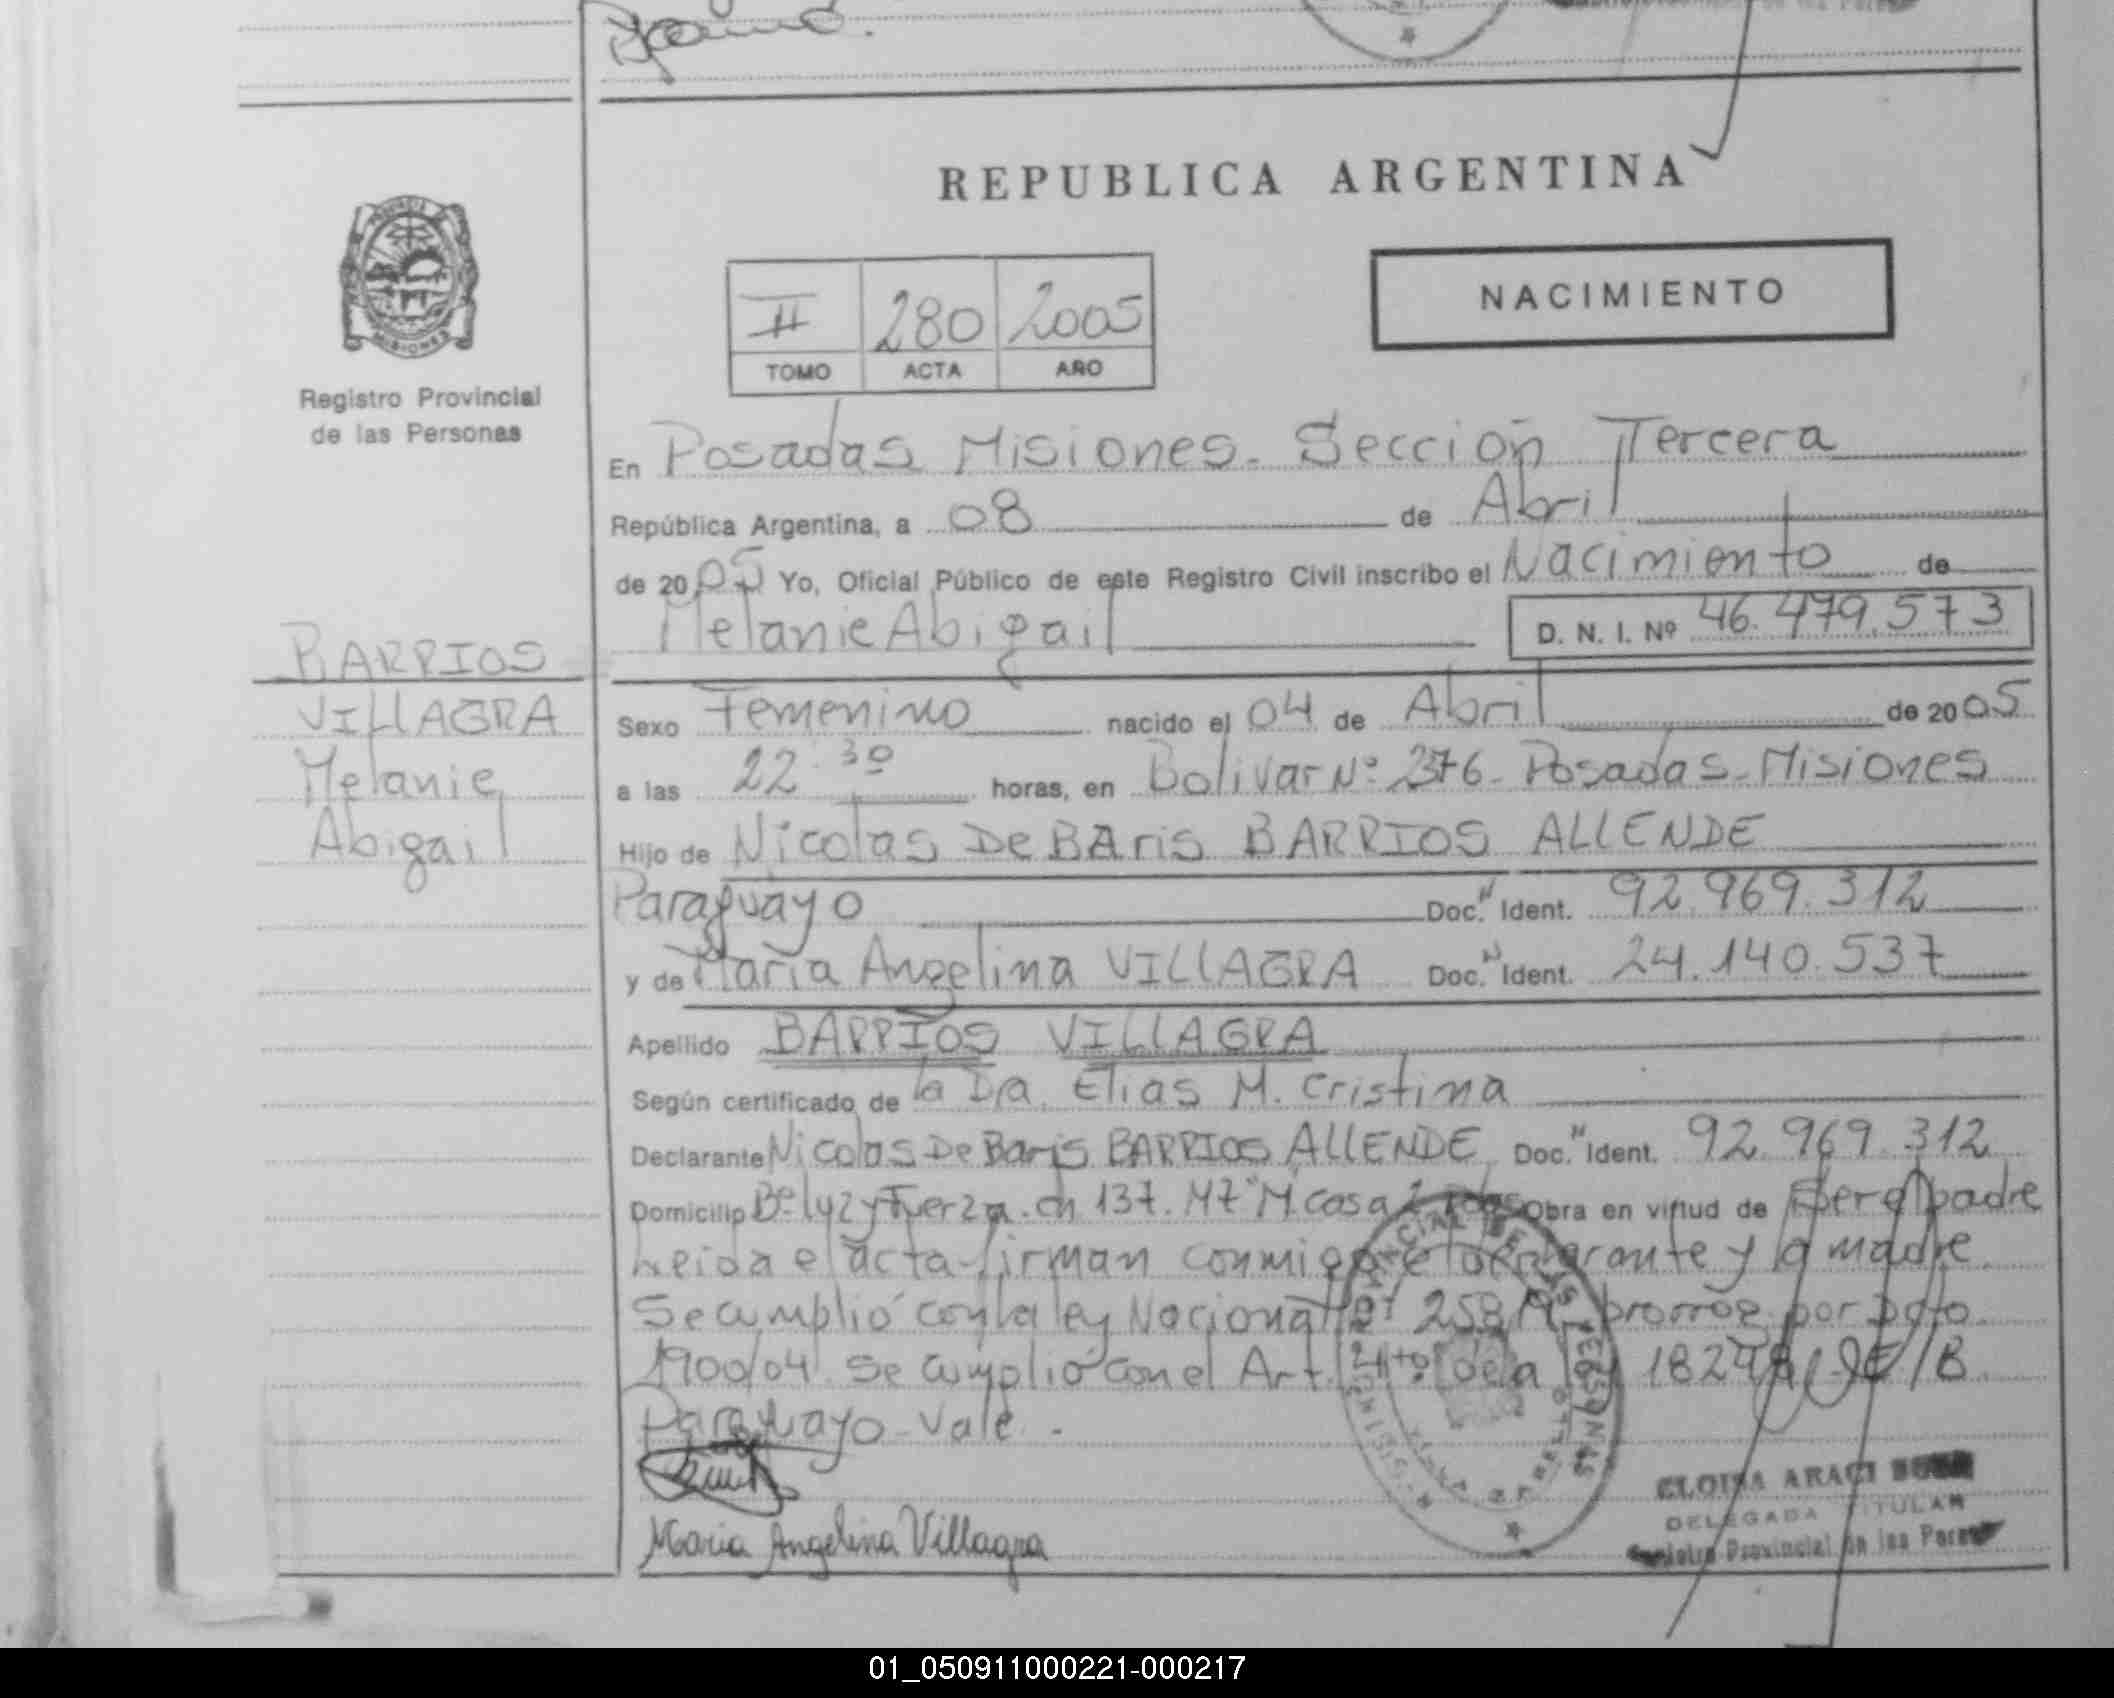 REPUBLICA ARGENTINA
NACIMIENTO
II 280 2005
TOMO ACTA AÑO
PROVINCIA DE
MISIONES
Registro Provincial
de las Personas
BARRIOS
VILLAGRA
Melanie
Abigail
En Posadas Misiones. Sección Tercera
República Argentina, a 08 de Abril
de 2005 Yo, Oficial Público de este Registro Civil inscribo el Nacimiento de
Melanie Abigail D. N. I. Nº 46.479.573
Sexo Femenino nacido el 04 de Abril de 2005
a las 22.30 horas, en Bolivar Nº 2376. Posadas. Misiones
Hijo de Nicolas De BAris BARRIOS ALLENDE
Paraguayo Doc. Ident. 92.969.312
y de Maria Angelina VILLAGRA Doc. Ident. 24.140.537
Apellido BARRIOS VILLAGRA
Según certificado de la Dra. Elias M. Cristina
Declarante Nicolas De Baris BARRIOS ALLENDE Doc. Ident. 92.969.312
Domicilio Bº luz y Fuerza. ch 137. M7 "M" casa 2 Obra en virtud de Ser el padre
Leida el acta firman conmigo el declarante y la madre.
Se cumplió con la ley Nacional por Dcto
1900/04. Se cumplió con el Art. 4to de la ley 18248
Paraguayo Vale.-
Maria Angelina Villagra
ELOISA ARACI
DELEGADA TITULAR
Registro Provincial de las Personas
01_050911000221-000217